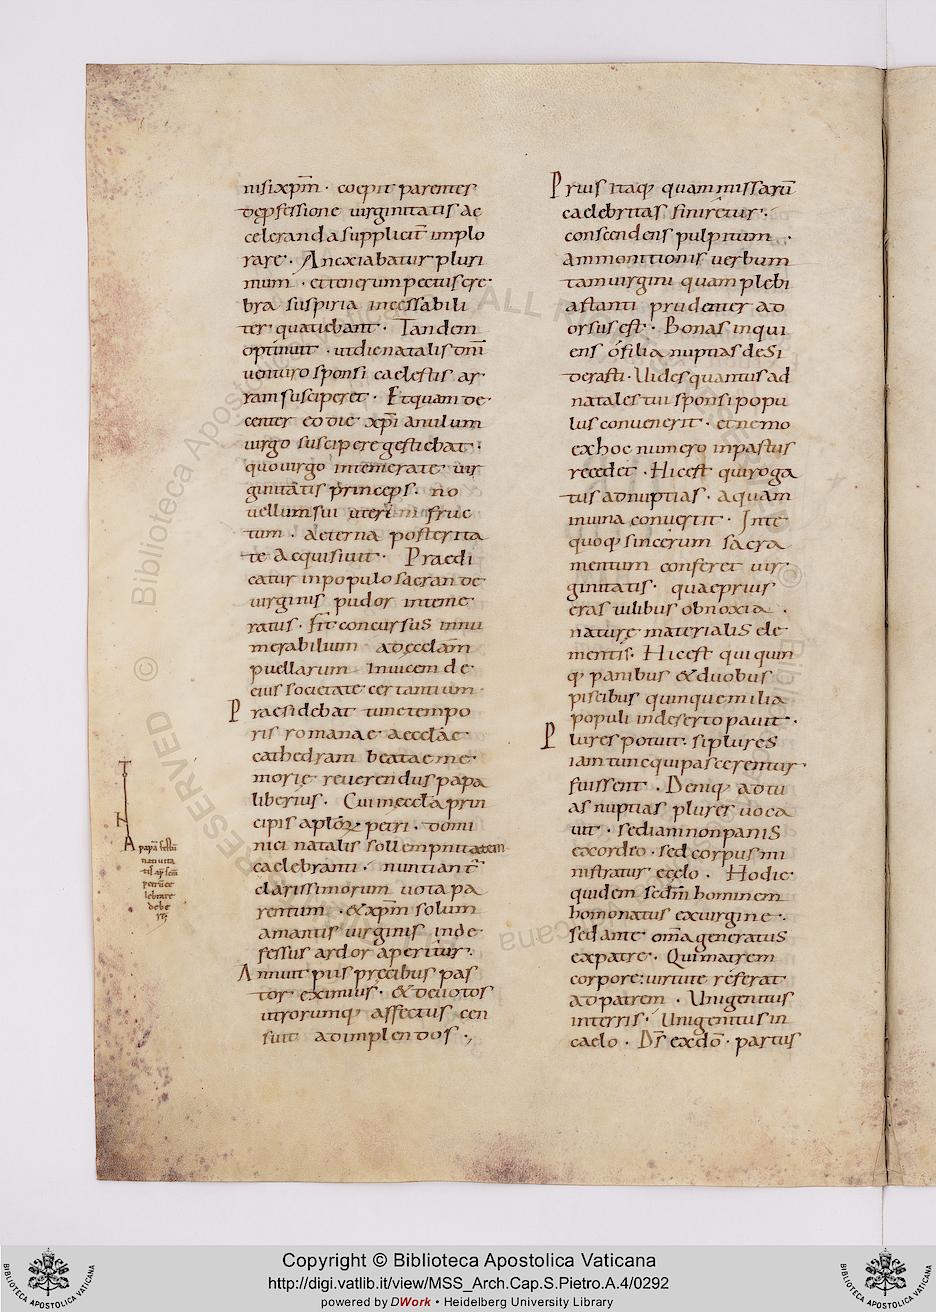 nisi xpm̄ · coepit parentes
de ꝓfessione uirginitatis ac
celeranda supplicit̄ implo
rare · Anexiabatur pluri
mum · et tenerum pectus cre·
bra suspiria incessabili
ter quatiebant · Tandem
optinuit · ut die natalis dn̄i
uenturo sponsi caelestis ar·
ram susciperet · Et quam de·
center eo die xp̄i anulum
uirgo suscipere gestiebat ·
quo uirgo intemerate uir
ginitatis princeps · no
uellum sui uteri fruc
tum · aeterna posterita
te acquisiuit · Praedi
catur in populo sacran de·
uirginis pudor inteme·
ratus · fit concursus innu
merabilium ad eccl̄am
puellarum inuicem de
eius societate certantium ·
Praesidebat tunc tempo
ris romanae aeccl̄ae
cathedram beatae me·
morię reuerendus papa
liberius · Cui in eccl̄a prin
cipis aplo℞ petri · domi
nici natalis sollempnitatem
caelebranti · nuntiant̄
clarissimorum uota pa
rentum · & xpm̄ solum
amantis uirginis inde·
fessus ardor aperitur ·
Annuit piis precibus pas
tor eximius · & deuotos
utrorumq; affectus cen
suit adimplendos ·,
papā
natiuita
tis
petrū ce
lebrare
debe
Prius itaq; quam missarū
caelebritas finiretur ·
conscendens pulpitum ·
ammonitionis uerbum
tam uirgini quam plebi
astanti prudenter ad
orsus est · Bonas inqui
ens ó filia nuptias desi
derasti · Uides quantus ad
natales tui sponsi popu
lus conuenerit · et nemo
ex hoc numero inpastus
recedet · Hic est qui roga
tus ad nuptias · aquam
in uina conuertit · In te
quoq; sincerum sacra
mentum conferet uir·
ginitatis · quae prius
eras uilibus obnoxia ·
naturę materialis ele·
mentis · Hic est qui quin
q; panibus & duobus
piscibus quinque milia
populi in deserto pauit ·
Plures potuit · si plures
iam tunc qui pascerentur
fuissent · Deniq; ad tu
as nuptias plures uoca
uit · sed iam non panis
ex ordeo · sed corpus mi
nistratur e cęlo · Hodie
quidem sedm̄ hominem
homo natus ex uirgine ·
sed ante om̄a generatus
ex patre · Qui matrem
corpore: uirtute referat
ad patrem · Unigenitus
in terris · Unigenitus in
caelo · Ds̄ ex dō · partus
Copyright © Biblioteca Apostolica Vaticana
http://digi.vatlib.it/view/MSS_Arch.Cap.S.Pietro.A.4/0292
powered by DWork • Heidelberg University Library